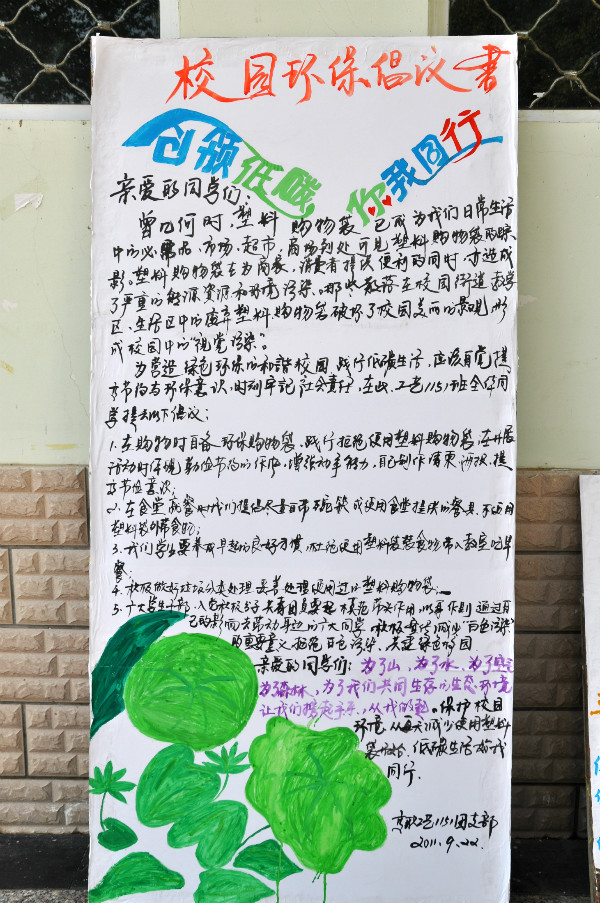 校园环保倡议书
创领低碳 你我同行
亲爱的同学们:
曾几何时,塑料购物袋已成为我们日常生活
中的必需品,市场、超市,商场到处可见塑料购物袋的踪
影。塑料购物袋在为商家,消费者提供便利的同时,才造成
了严重的能源资源和环境污染。那些散落在校园街道教学
区、生活区中的废弃塑料购物袋破坏了校园美丽的景观,形
成校园中的"视觉污染"。
为营造绿色环保的和谐校园,践行低碳生活,应该自觉提
高节约与环保意识,时刻牢记社会责任,在此,工艺1151班全体同
学提出以下倡议:
1.在购物时自备环保购物袋,践行拒绝使用塑料购物袋,在开展
活动时体现勤俭节约的作风,增强动手能力,自己制作
高节俭意识;
2.在食堂就餐时我们提倡尽量自带碗筷或使用食堂提供的餐具,不使用
塑料袋外带食物;
3.我们学生要养成早起的良好习惯,杜绝使用塑料袋装食物带入教室吃早
餐;
4.积极做好垃圾分类处理,妥善处理使用过的塑料购物袋;
5.广大学生干部,入党积极分子,共青团员要起模范带头作用,以身作则,通过自
己的影响去带动身边的广大同学,积极宣传减少"白色污染"
的重要意义,拒绝白色污染,共建绿色校园
亲爱的同学们:为了山,为了水,为了
为了森林,为了我们共同生存的生态环境
让我们携起手来,从我做起。保护校园
环境,从每天减少使用塑料
袋开始。低碳生活,你我
同行.
工艺1151团支部
2011.9.22.